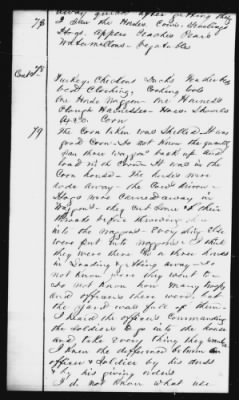 78
I saw the Horses. Cows.
Hogs. Apples Peaches Pears
Watermellons - Vegetables
78
Contd.
Turkeys. Chickens Ducks
bed Clothing. Cooking
One Horse Waggon - One Harness
Plough Hoes. Shovels
Corn
79
The Corn taken was Shelled. It was
good Corn - I do not know the quantity
I saw them back up their
load it with Corn - It was in the
Corn house - The horses were
rode away - the Cows driven -
Hogs were carried away in
Waggons - they cut some of their
throats before throwing them
into the Waggons - Every thing else
were put into Waggons - I think
they were there two or three hours
in loading & getting away - I do
not know where they went to
I do not know how many troops
and officers there were. but
the yard was full of them -
I heard the officers Commanding
the Soldiers to go into the house
and take every thing they
I knew the difference between an
officer & Soldier by his dress
& by his giving orders
I do not know what use